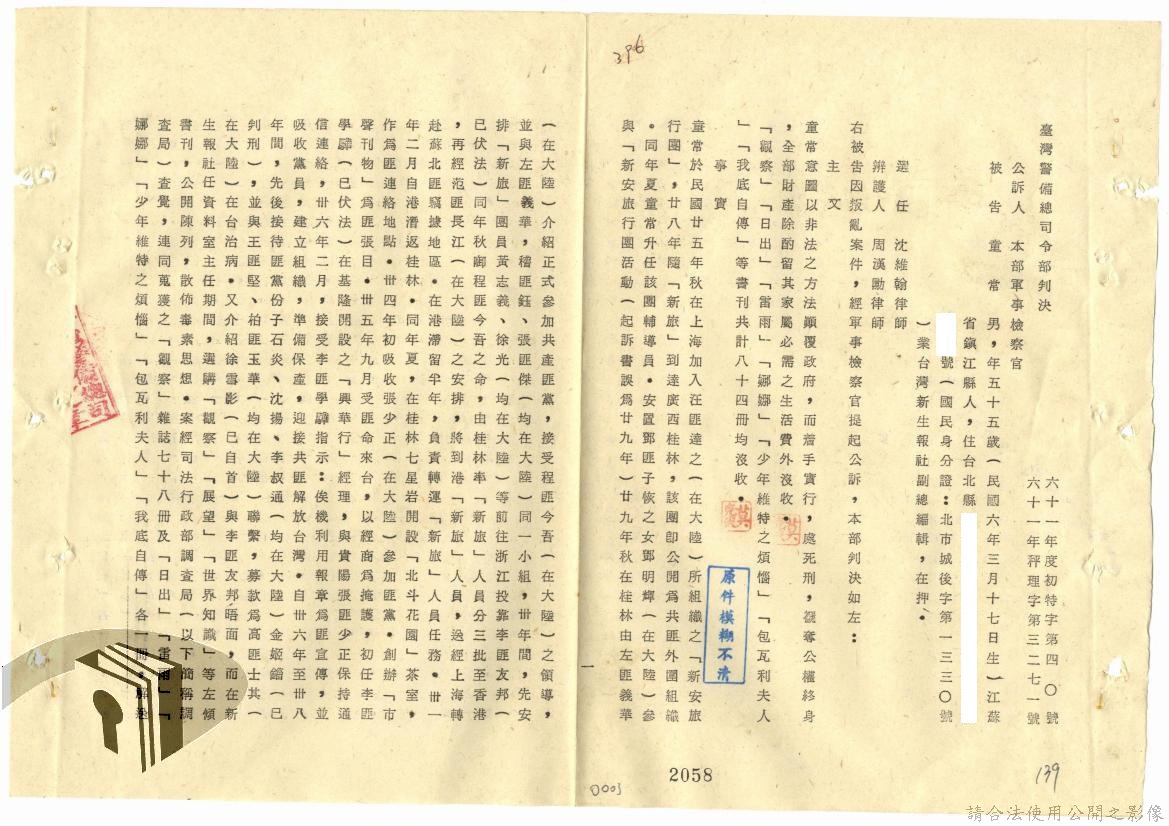 396
臺灣警備總司令部判決
六十一年度初特字第四〇號
六十一年秤理字第三二七一號
公訴人 本部軍事檢察官
被告 童常 男,年五十五歲(民國六年三月十七日生)江蘇
省鎮江縣人,住台北縣
號(國民身分證:北市城後字第一三三〇號
)業台灣新生報社副總編輯,在押.
選任 沈維翰律師
辯護人 周漢勛律師
右被告因叛亂案件,經軍事檢察官提起公訴,本部判決如左:
主文
童常意圖以非法之方法顚覆政府,而着手實行,處死刑,褫奪公權終身
,全部財產除酌留其家屬必需之生活費外沒收.
「觀察」「日出」「雷雨」「娜娜」「少年維特之煩惱」「包瓦利夫人
」「我底自傳」等書刊共計八十四冊均沒收.
事實
童常於民國廿五年秋在上海加入在匪達之(在大陸)所組織之「新安旅
行團」,廿八年隨「新旅」到達廣西桂林,該團卽公開為共匪外圍組織
.同年夏童常升任該團輔導員.安置鄧匪子恢之女鄧明煇(在大陸)參
與「新安旅行團活動(起訴書誤為廿九年)廿九年秋在桂林由左匪義華
原件模糊不清
一
(在大陸)介紹正式參加共產匪黨,接受程匪今吾(在大陸)之領導,
並與左匪義華,稽匪鈺、張匪傑(均在大陸)同一小組,卅年間,先安
排「新旅」團員黃志義、徐光(均在大陸)等前往浙江投靠李匪友邦(
已伏法)同年秋銜程匪今吾之命,由桂林率「新旅」人員分三批至香港
,再經范匪長江(在大陸)之安排,將到港「新旅」人員,逸經上海轉
赴蘇北匪竊據地區.在港滯留半年,負責轉運「新旅」人員任務.卅一
年二月自港潛返桂林.同年夏,在桂林七星岩開設「北斗花園」茶室,
作為匪連絡地點.卅四年初吸收張少正(在大陸)參加匪黨.創辦「市
聲刊物」為匪張目.卅五年九月受匪命來台,以經商為掩護,初任李匪
學驊(已伏法)在基隆開設之「興華行」經理,與貴陽張匪少正保持通
信連絡,卅六年二月,接受李匪學驊指示:俟機利用報章為匪宣傳,並
吸收黨員,建立組織,準備保產,迎接共匪解放台灣.自卅六年至卅八
年間,先後接待匪黨份子石炎、沈揚、李叔通(均在大陸)金姬鎦(已
判刑),並與王匪堅、柏匪玉華(均在大陸)聯繫,募款為高匪士其(
在大陸)在台治病.又介紹徐雪影(已自首)與李匪友邦晤面,而在新
生報社任資料室主任期間,選購「觀察」「展望」「世界知識」等左傾
書刊,公開陳列,散佈毒素思想.案經司法行政部調查局(以下簡稱調
査局)査覺,連同蒐獲之「觀察」雜誌七十八冊及「日出」「雷雨」「
娜娜」「少年維特之煩惱」「包瓦利夫人」「我底自傳」各一冊,解送
2058
0003
139
請合法使用公開之影像